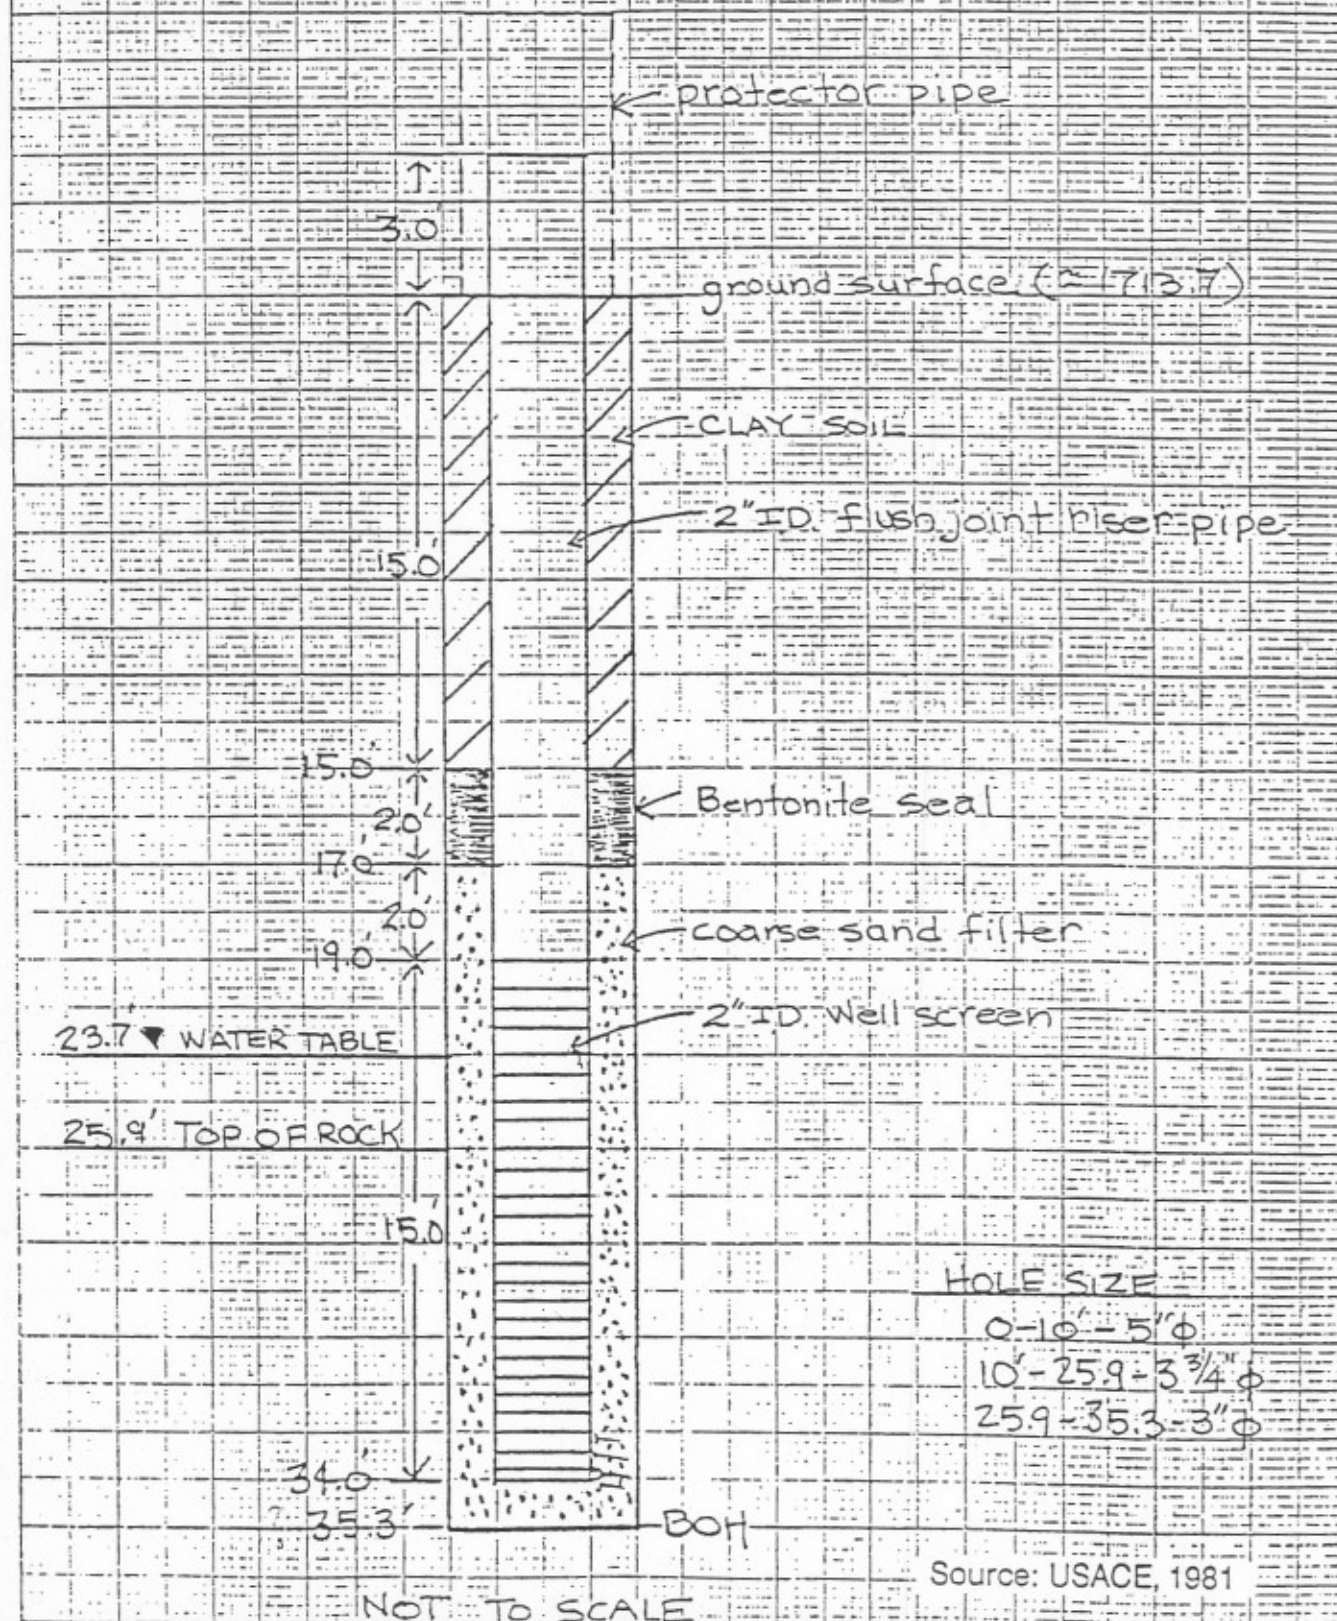 protector pipe
3.0'
ground surface (≈1713.7)
CLAY SOIL
2" ID. flush joint riser pipe
15.0'
15.0'
Bentonite seal
2.0'
17.0'
2.0'
coarse sand filter
19.0'
2" ID. Well screen
23.7' ▼ WATER TABLE
25.9' TOP OF ROCK
15.0'
HOLE SIZE
0-10' - 5" φ
10' - 25.9 - 3 3/4" φ
25.9 - 35.3 - 3" φ
34.0'
35.3'
BOH
Source: USACE, 1981
NOT TO SCALE